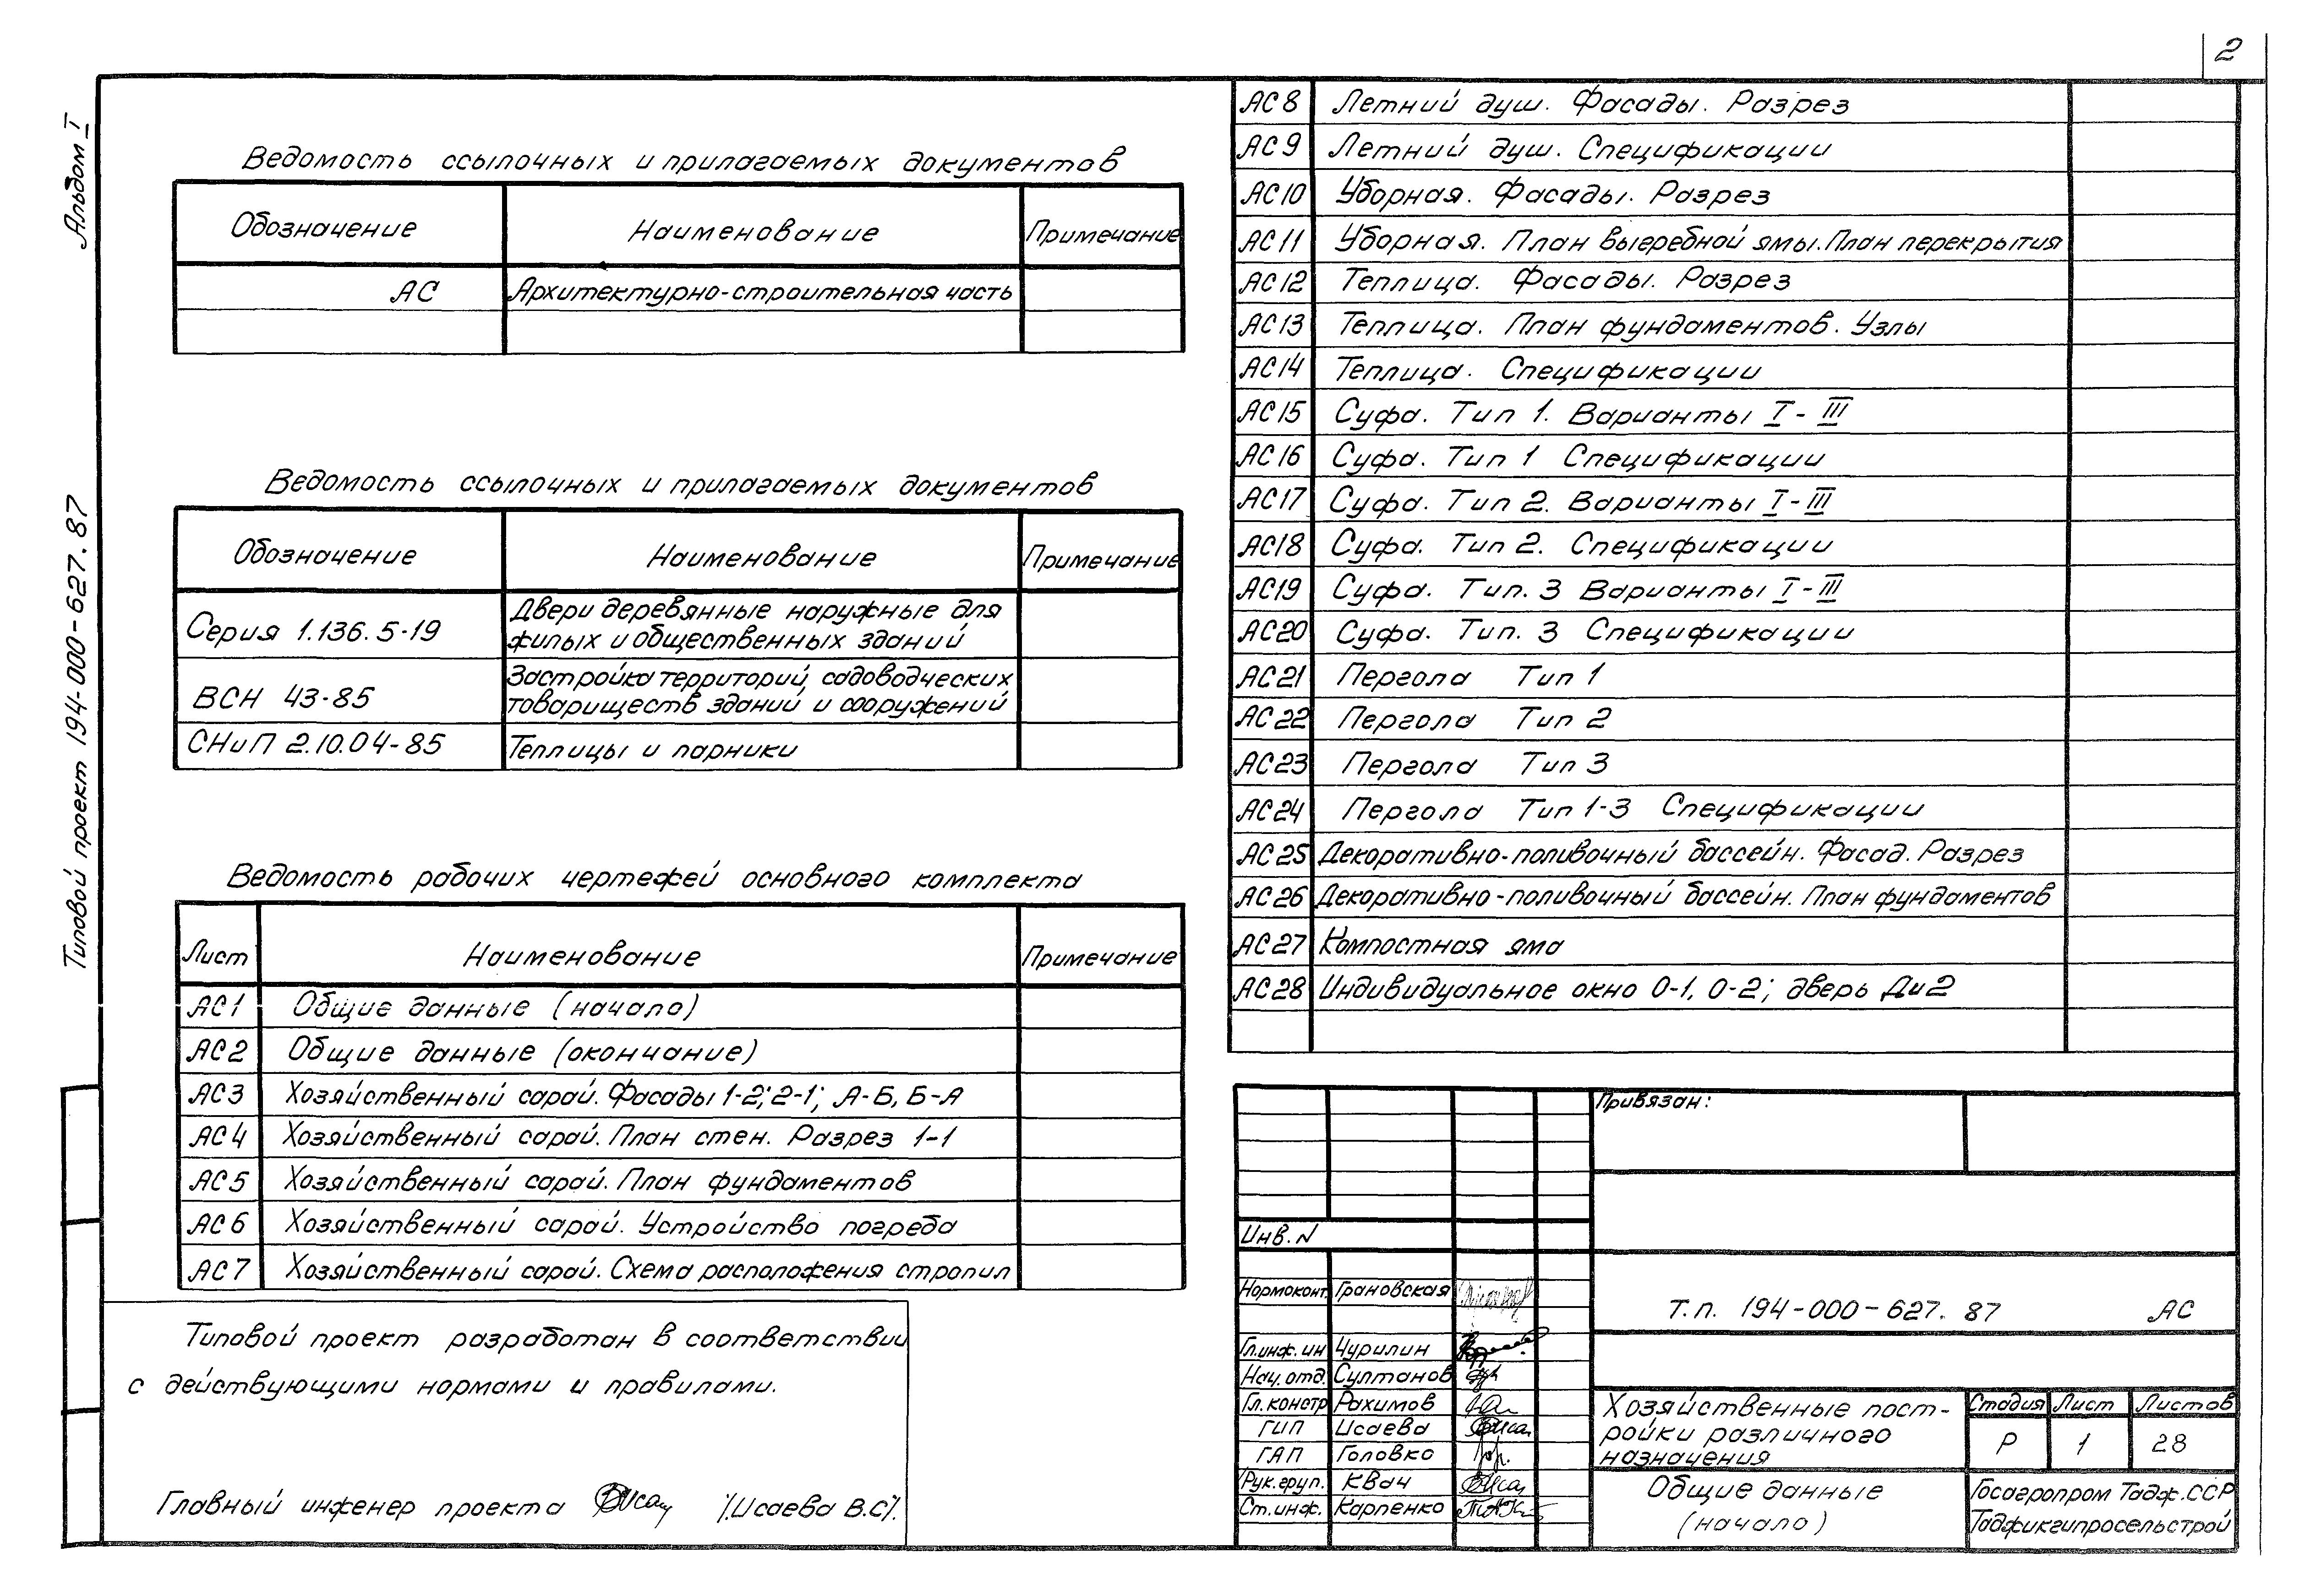 2
Альбом I
Типовой проект 194-000-627.87
Ведомость ссылочных и прилагаемых документов
Обозначение Наименование Примечание
АС Архитектурно-строительная часть
Ведомость ссылочных и прилагаемых документов
Обозначение Наименование Примечание
Серия 1.136.5-19 Двери деревянные наружные для
жилых и общественных зданий
ВСН 43-85 Застройка территорий садоводческих
товариществ зданий и сооружений
СНиП 2.10.04-85 Теплицы и парники
Ведомость рабочих чертежей основного комплекта
Лист Наименование Примечание
АС1 Общие данные (начало)
АС2 Общие данные (окончание)
АС3 Хозяйственный сарай. Фасады 1-2; 2-1; А-Б, Б-А
АС4 Хозяйственный сарай. План стен. Разрез 1-1
АС5 Хозяйственный сарай. План фундаментов
АС6 Хозяйственный сарай. Устройство погреба
АС7 Хозяйственный сарай. Схема расположения стропил
Типовой проект разработан в соответствии
с действующими нормами и правилами.
Главный инженер проекта /.Исаева В.С/.
АС8 Летний душ. Фасады. Разрез
АС9 Летний душ. Спецификации
АС10 Уборная. Фасады. Разрез
АС11 Уборная. План выгребной ямы. План перекрытия
АС12 Теплица. Фасады. Разрез
АС13 Теплица. План фундаментов. Узлы
АС14 Теплица. Спецификации
АС15 Суфа. Тип 1. Варианты I-III
АС16 Суфа. Тип 1 Спецификации
АС17 Суфа. Тип 2. Варианты I-III
АС18 Суфа. Тип 2. Спецификации
АС19 Суфа. Тип. 3 Варианты I-III
АС20 Суфа. Тип. 3 Спецификации
АС21 Пергола Тип 1
АС22 Пергола Тип 2
АС23 Пергола Тип 3
АС24 Пергола Тип 1-3 Спецификации
АС25 Декоративно-поливочный бассейн. Фасад. Разрез
АС26 Декоративно-поливочный бассейн. План фундаментов
АС27 Компостная яма
АС28 Индивидуальное окно О-1, О-2; дверь Ди2
Привязан:
Инв. N
Нормоконт. Грановская
Гл.инж.ин Чурилин
Нач.отд. Султанов
Гл.констр Рахимов
ГИП Исаева
ГАП Головко
Рук.груп. Квач
Ст.инж. Карпенко
Т.п. 194-000-627.87 АС
Хозяйственные пост-
ройки различного
назначения
Стадия Лист Листов
Р 1 28
Общие данные
(начало)
Госагропром Тадж.ССР
Таджикгипросельстрой